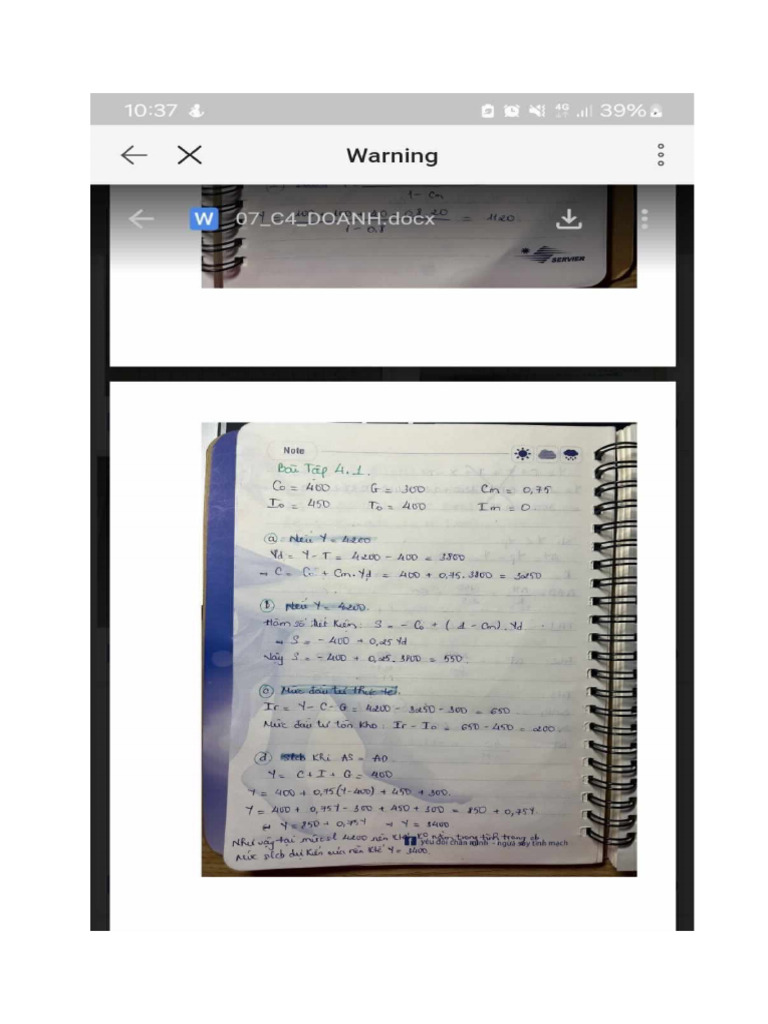 10:37 4G 39%
Warning
1 - Cm
07_C4_DOANH.docx = 1120
1 - 0,8
SERVIER
Note
Bài Tập 4.1.
C₀ = 400 G = 300 Cm = 0,75
I₀ = 450 T₀ = 400 Im = 0
a Nếu Y = 4200
Yd = Y - T = 4200 - 400 = 3800
→ C = C₀ + Cm.Yd = 400 + 0,75.3800 = 3250
b Nếu Y = 4200.
Hàm số tiết kiệm: S = - C₀ + (1 - Cm).Yd
→ S = - 400 + 0,25Yd
Vậy S = - 400 + 0,25.3800 = 550.
c Mức đầu tư thực tế.
Ir = Y - C - G = 4200 - 3250 - 300 = 650
Mức đầu tư tồn kho: Ir - I₀ = 650 - 450 = 200.
d Khi AS = AD
Y = C + I + G = 400
Y = 400 + 0,75(Y-400) + 450 + 300.
Y = 400 + 0,75Y - 300 + 450 + 300 = 850 + 0,75Y
↔ Y = 850 + 0,75Y → Y = 3400
Như vậy tại mức sl 4200 nền kinh tế K⁰ nằm trong tình trạng cb
yêu đôi chân mình - ngừa suy tĩnh mạch
Mức dự kiến của nền Y = 3400.